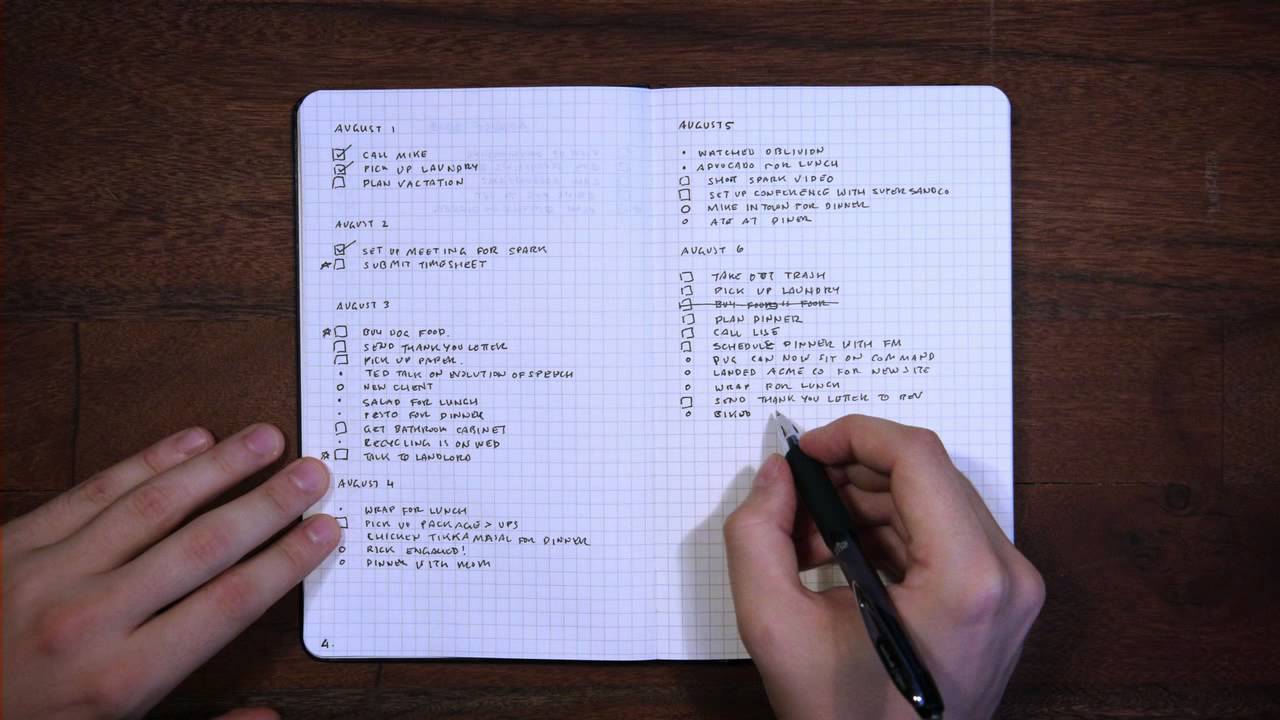 AUGUST 1
CALL MIKE
PICK UP LAUNDRY
PLAN VACTATION
AUGUST 2
SET UP MEETING FOR SPARK
SUBMIT TIMESHEET
AUGUST 3
BUY DOG FOOD.
SEND THANK YOU LETTER
PICK UP PAPER.
TED TALK ON EVOLUTION OF SPEECH
NEW CLIENT
SALAD FOR LUNCH
PESTO FOR DINNER
GET BATHROOM CABINET
RECYCLING IS ON WED
TALK TO LANDLORD
AUGUST 4
WRAP FOR LUNCH
PICK UP PACKAGE > UPS
CHICKEN TIKKA MASAL FOR DINNER
RICK ENGAGED!
DINNER WITH MOM
4.
AUGUST 5
WATCHED OBLIVION
ADVOCADO FOR LUNCH
SHOOT SPARK VIDEO
SET UP CONFERENCE WITH SUPERSANDCO
MIKE IN TOWN FOR DINNER
ATE AT DINER
AUGUST 6
TAKE OUT TRASH
PICK UP LAUNDRY
BUY FOOD IS FOOR
PLAN DINNER
CALL LISE
SCHEDULE DINNER WITH FM
PUG CAN NOW SIT ON COMMAND
LANDED ACME CO FOR NEW SITE
WRAP FOR LUNCH
SEND THANK YOU LETTER TO